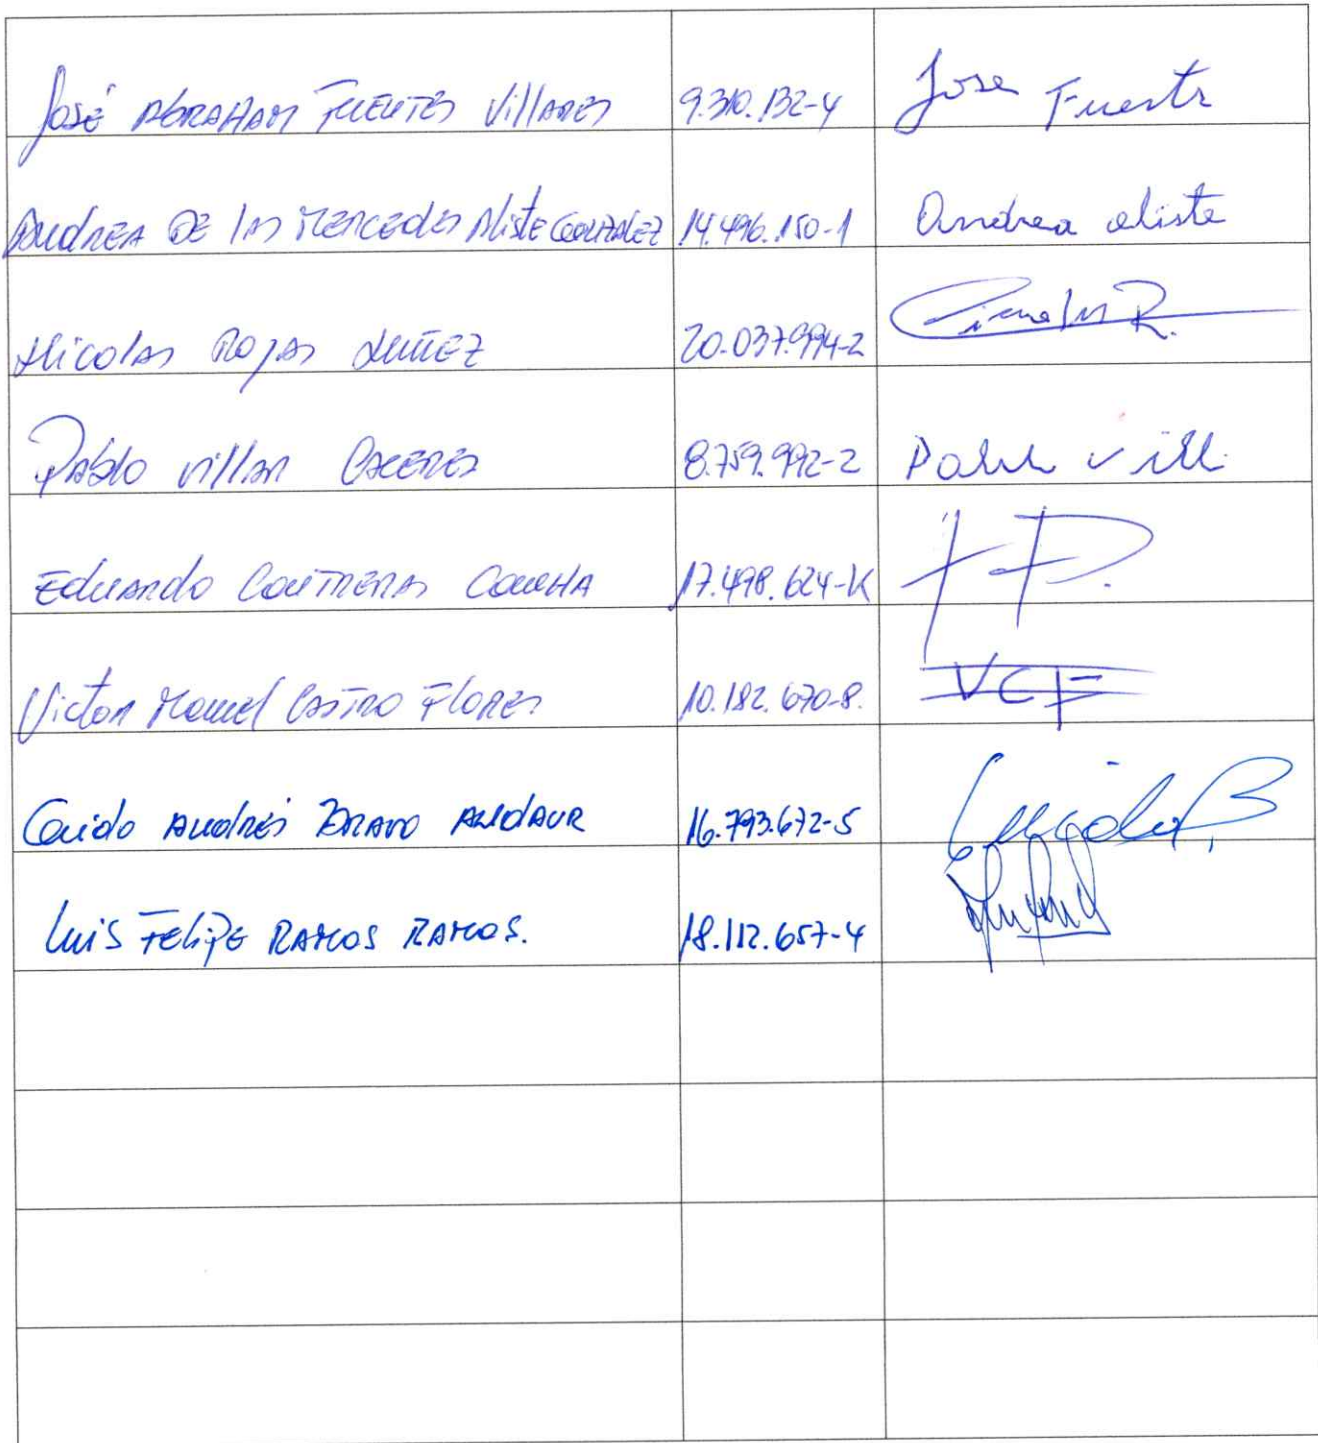 José Abraham Fuentes Villares 9.310.132-4 Jose Fuents
Andrea de las Mercedes Aliste González 14.496.150-1 Andrea aliste
Nicolas Rojas Nuñez 20.037.994-2 R.
Pablo Villar Caceres 8.759.992-2 Pablo Vill
Eduardo Contreras Concha 17.498.624-K
Victor Manuel Castro Flores 10.182.670-8. VCF
Guido Andrés Bravo Andaur 16.793.672-5 Guido B,
Luis Felipe Ramos Ramos. 18.112.657-4